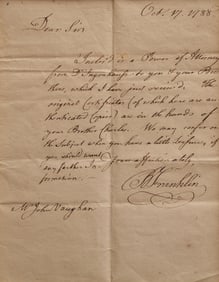 Oct. 17. 1788
Dear Sir
Inclos'd is a Power of Attorney
from Dr Ingenhausz to you & your Bro
thers, which I have just receiv'd. The
original Certificates (of which here are au
thenticated Copies) are in the hands of
your Brother Charles. We may confer on
the Subject when you have a little Leisure, if
you should want
any farther In
formation.
Yours affectionately,
B Franklin
Mr John Vaughan